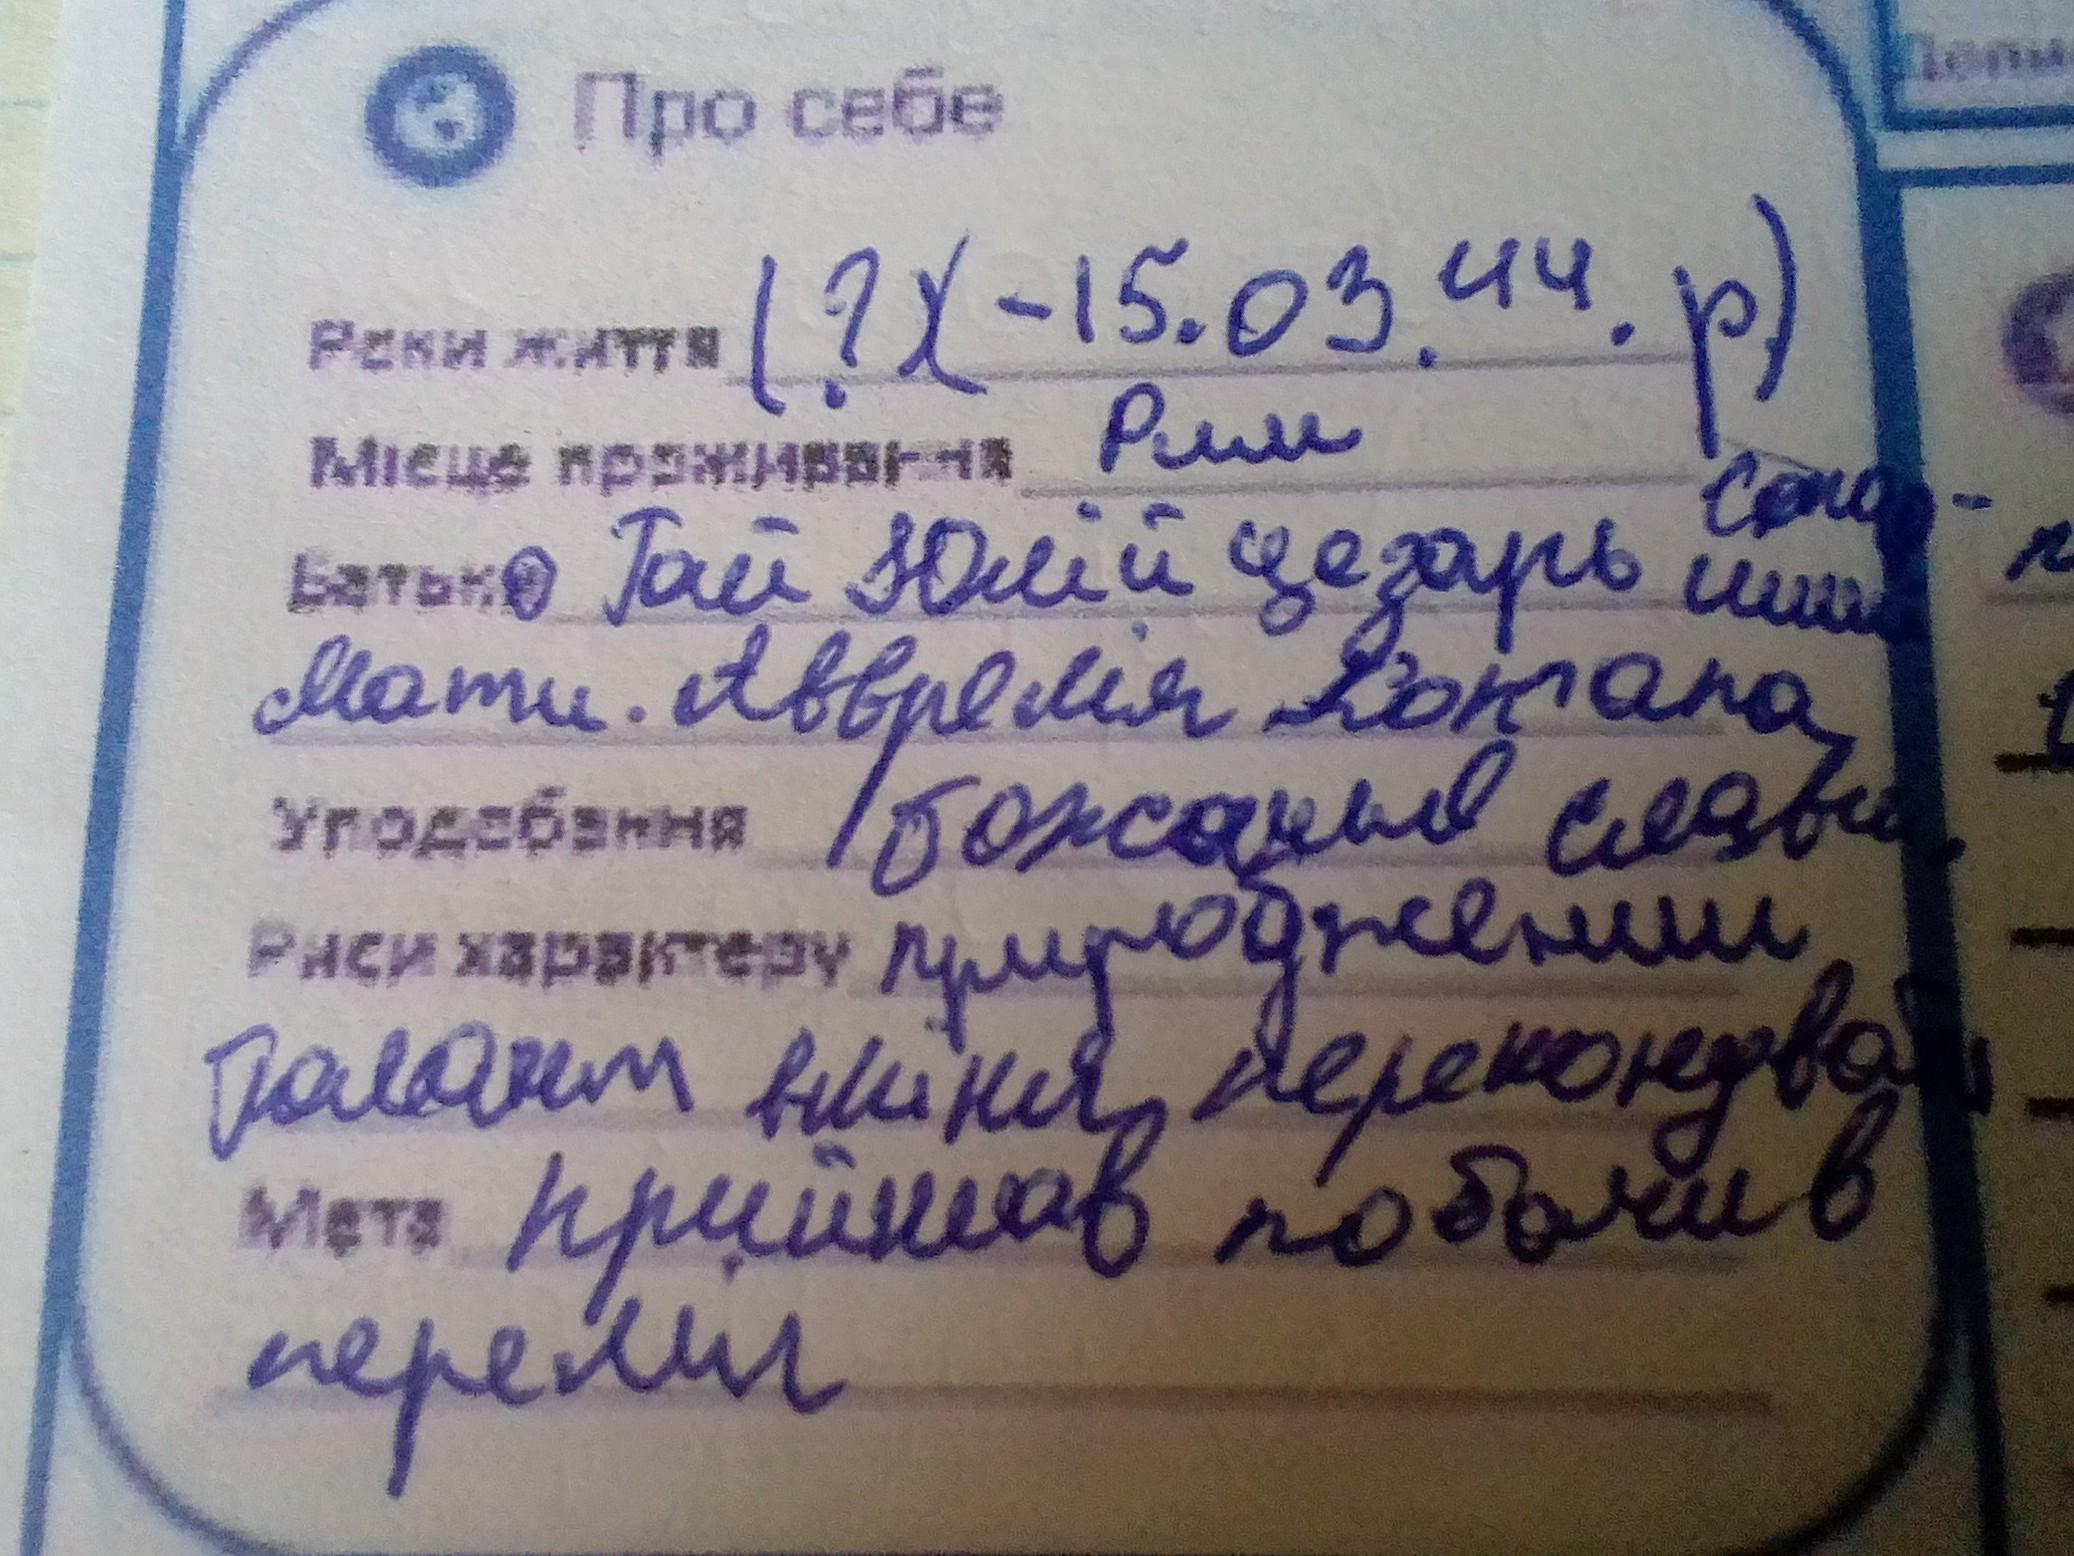 Про себе
Роки життя (?)(-15.03.44. р)
Місце проживання Рим
Батько Гай Юлій Цезарь
Мати. Аврелія
Уподобання бажання слави,
Риси характеру природжений
талант вміння переконувати
Мета прийшав побачив
переміг